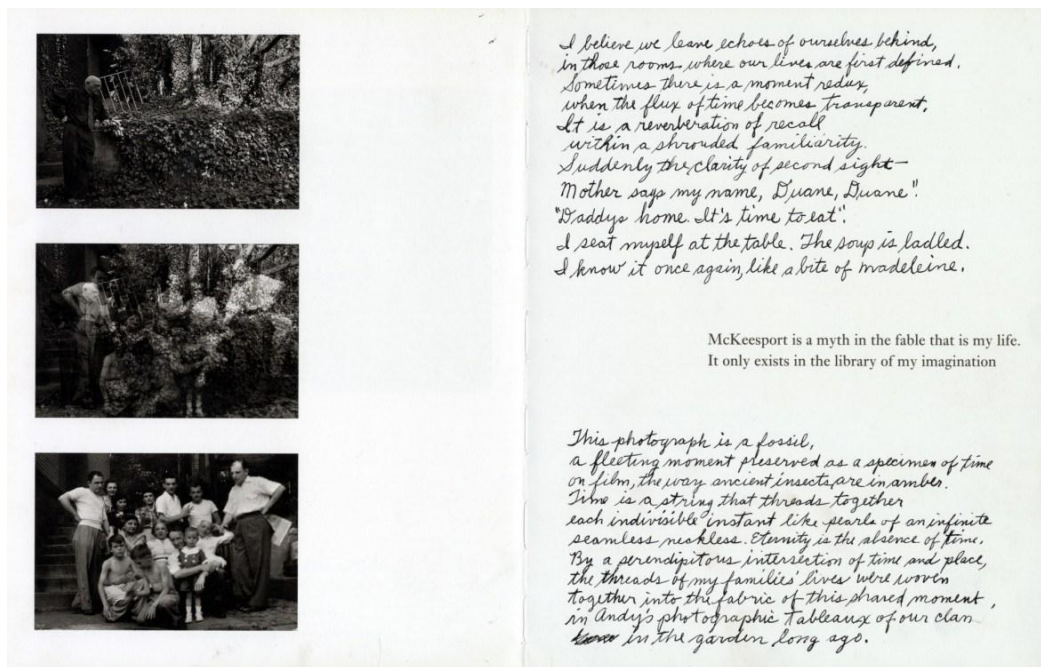 I believe we leave echoes of ourselves behind,
in those rooms where our lives are first defined.
Sometimes there is a moment redux,
when the flux of time becomes transparent,
It is a reverberation of recall
within a shrouded familiarity.
Suddenly the clarity of second sight—
Mother says my name, Duane, Duane".
"Daddys home. It's time to eat".
I seat myself at the table. The soup is ladled.
I know it once again, like a bite of madeleine.
McKeesport is a myth in the fable that is my life.
It only exists in the library of my imagination
This photograph is a fossil,
a fleeting moment preserved as a specimen of time
on film, the way ancient insects, are in amber.
Time is a string that threads together
each indivisible instant like pearls of an infinite
seamless neckless. Eternity is the absence of time.
By a serendipitous intersection of time and place,
the threads of my families' lives were woven
together into the fabric of this shared moment,
in Andy's photographic tableaux of our clan
in the garden long ago.